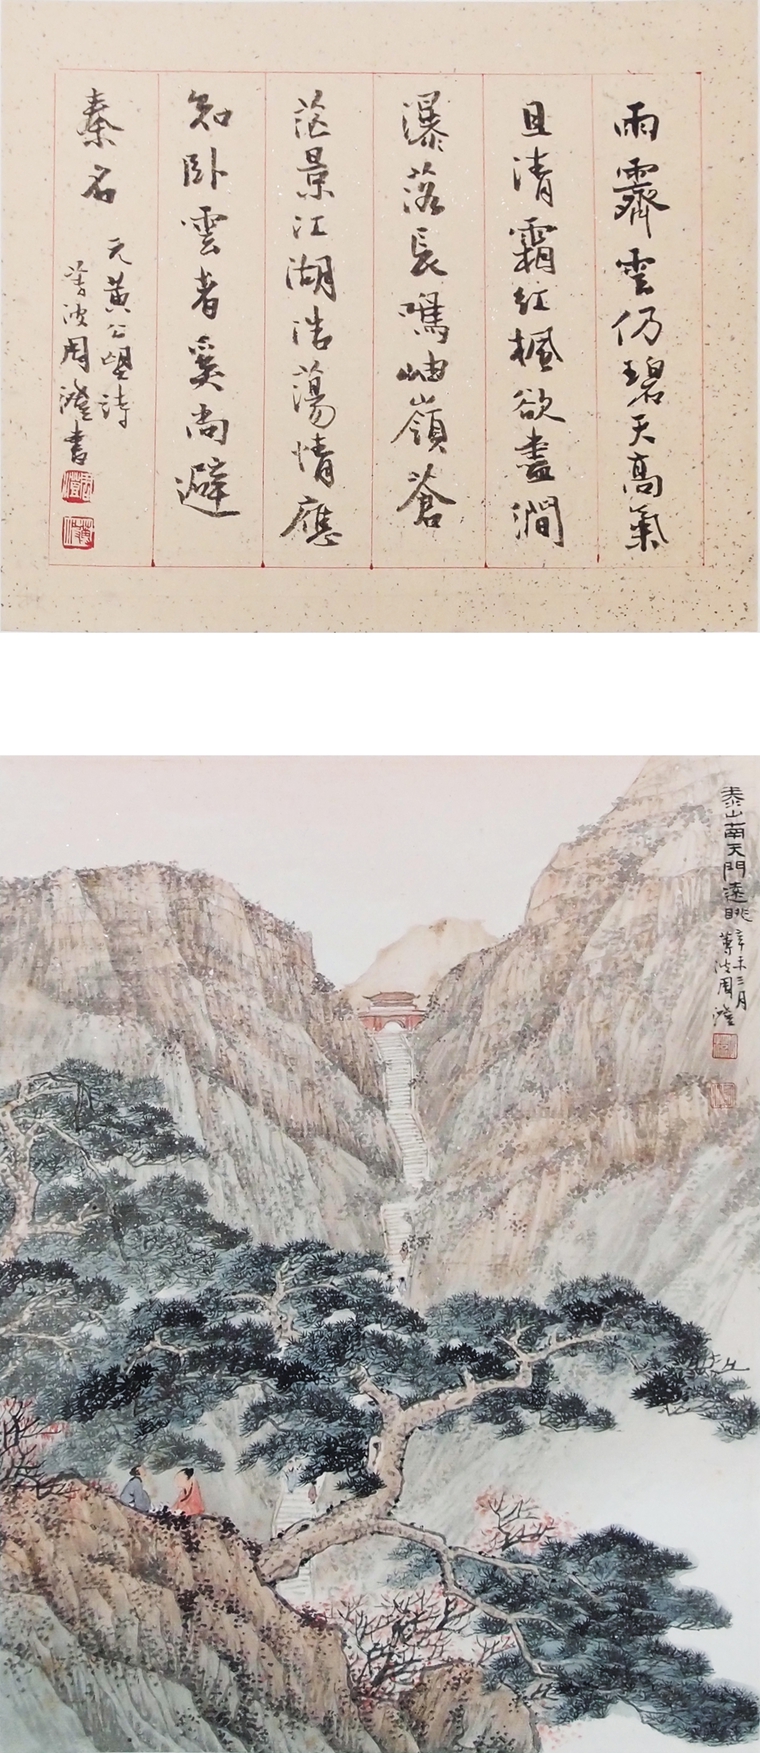 雨霽雲仍碧天高氣
且清霜紅楓欲盡澗
瀑落長鳴岫嶺蒼
茫景江湖浩蕩情應
知卧雲者奚尚避
秦名
元黃公望詩
莘波周澄書
泰山南天門遠眺
辛未三月
莘波周澄